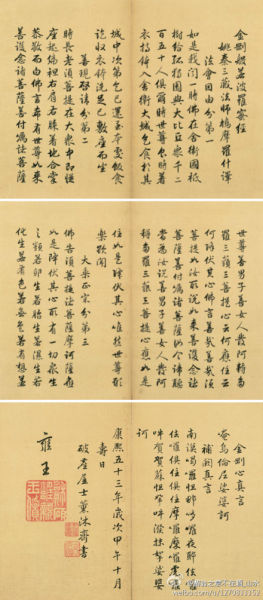 金剛般若波羅蜜經
姚秦三藏法師鳩摩羅什譯
法會因由分第一
如是我聞一時佛在舍衛國祇
樹給孤獨園與大比丘眾千二
百五十人俱爾時世尊食時著
衣持鉢入舍衛大城乞食於其
城中次第乞已還至本處飯食
訖收衣鉢洗足已敷座而坐
善現啟請分第二
時長老須菩提在大眾中即從
座起偏袒右肩右膝著地合掌
恭敬而白佛言希有世尊如來
善護念諸菩薩善付囑諸菩薩
世尊善男子善女人發阿耨多
羅三藐三菩提心云何應住云
何降伏其心佛言善哉善哉須
菩提如汝所說如來善護念諸
菩薩善付囑諸菩薩汝今諦聽
當為汝說善男子善女人發阿
耨多羅三藐三菩提心應如是
住如是降伏其心唯然世尊願
樂欲聞
大乘正宗分第三
佛告須菩提諸菩薩摩訶薩應
如是降伏其心所有一切眾生
之類若卵生若胎生若濕生若
化生若有色若無色若有想若
金剛心真言
唵烏倫尼娑婆訶
補闕真言
南謨喝囉怛那哆囉夜耶佉囉
佉囉俱住俱住摩囉摩囉虎囉
吽賀賀蘇怛拏吽潑抹拏娑婆
訶
康熙五十三年歲次甲午十月
壽日
破塵居士薰沐齋書
雍王